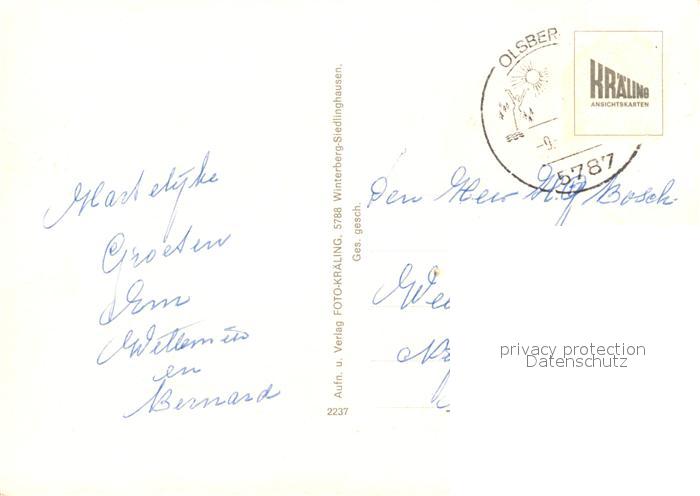 Hartelijke
Groeten
Om
Willemien
en
Bernard
Aufn. u. Verlag FOTO-KRÄLING, 5788 Winterberg-Siedlinghausen.
Ges. gesch.
2237
OLSBER
-9.-
5787
KRÄLING
ANSICHTSKARTEN
Den Heer H.J. Bosch
privacy protection
Datenschutz